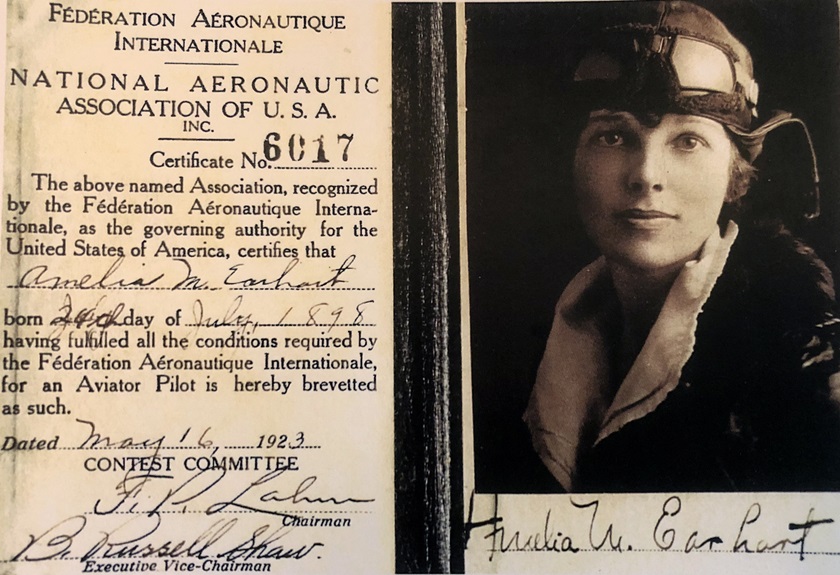 FÉDÉRATION AÉRONAUTIQUE
INTERNATIONALE
NATIONAL AERONAUTIC
ASSOCIATION OF U. S. A.
INC.
Certificate No. 6017
The above named Association, recognized
by the Fédération Aéronautique Interna-
tionale, as the governing authority for the
United States of America, certifies that
Amelia M. Earhart
born 24th day of July, 1898
having fulfilled all the conditions required by
the Fédération Aéronautique Internationale,
for an Aviator Pilot is hereby brevetted
as such.
Dated May 16, 1923
CONTEST COMMITTEE
F. P. Lahm
Chairman
B. Russell Shaw.
Executive Vice-Chairman
Amelia M. Earhart